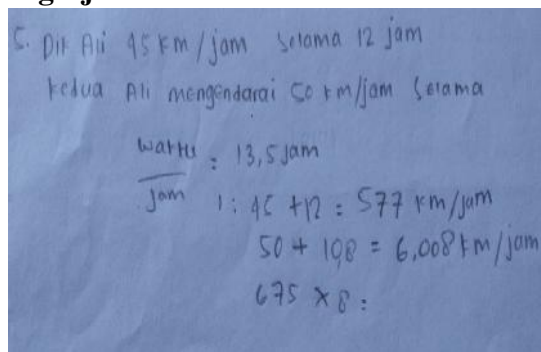 5. Dik Ali 45 km/jam Selama 12 jam
kedua Ali mengendarai 50 km/jam Selama
waktu = 13,5 jam
jam
1: 45 + 12 = 577 km/jam
50 + 108 = 6,008 km/jam
675 x 8 =